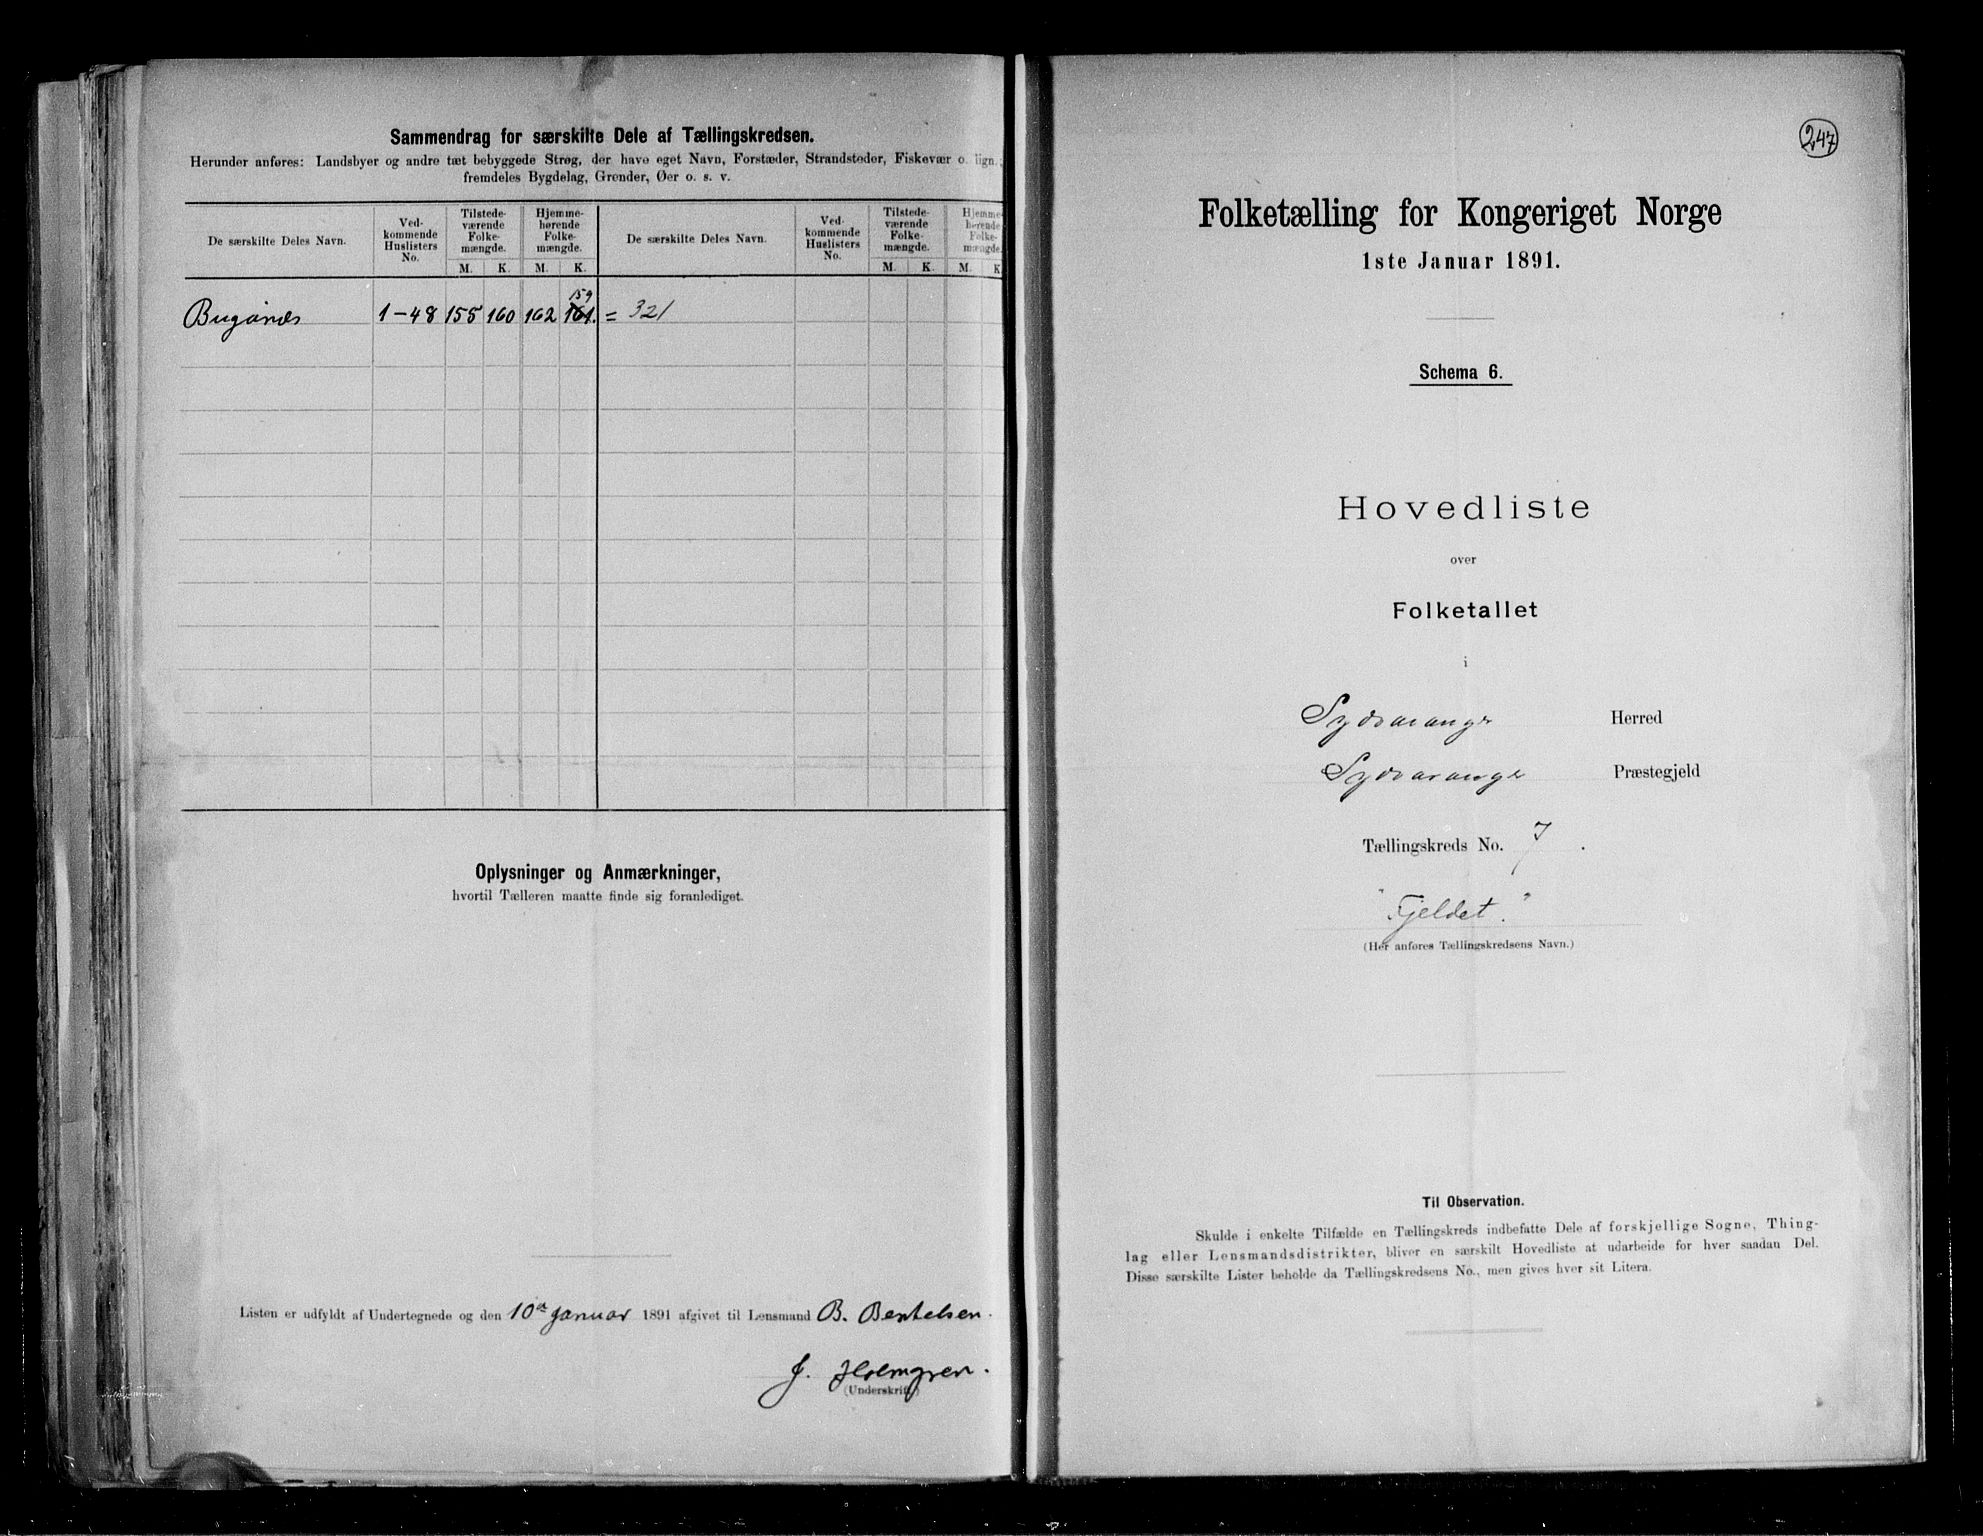 Sammendrag for særskilte Dele af Tællingskredsen.
Herunder anføres: Landsbyer og andre tæt bebyggede Strøg, der have eget Navn, Forstæder, Strandsteder, Fiskevær o. lign.;
fremdeles Bygdelag, Grender, Øer o. s. v.
De særskilte Deles Navn.
Ved-
kommende
Huslisters
No.
Tilstede-
værende
Folke-
mængde.
Hjemme-
hørende
Folke-
mængde.
M. K. M. K.
De særskilte Deles Navn.
Ved-
kommende
Huslisters
No.
Tilstede-
værende
Folke-
mængde.
Hjemme-
hørende
Folke-
mængde.
M. K. M. K
159
Bugønæs 1-48 155 160 162 161. = 321
Oplysninger og Anmærkninger,
hvortil Tælleren maatte finde sig foranlediget.
Listen er udfyldt af Undertegnede og den 10de Januar 1891 afgivet til Lensmand B. Bentelsen.
J. Holmgren.
(Underskrift)
247
Folketælling for Kongeriget Norge
1ste Januar 1891.
Schema 6.
Hovedliste
over
Folketallet
i
Sydvaranger Herred
Sydvaranger Præstegjeld
Tællingskreds No. 7.
"Fjeldet."
(Her anføres Tællingskredsens Navn.)
Til Observation.
Skulde i enkelte Tilfælde en Tællingskreds indbefatte Dele af forskjellige Sogne, Thing-
lag eller Lensmandsdistrikter, bliver en særskilt Hovedliste at udarbeide for hver saadan Del.
Disse særskilte Lister beholde da Tællingskredsens No., men gives hver sit Litera.